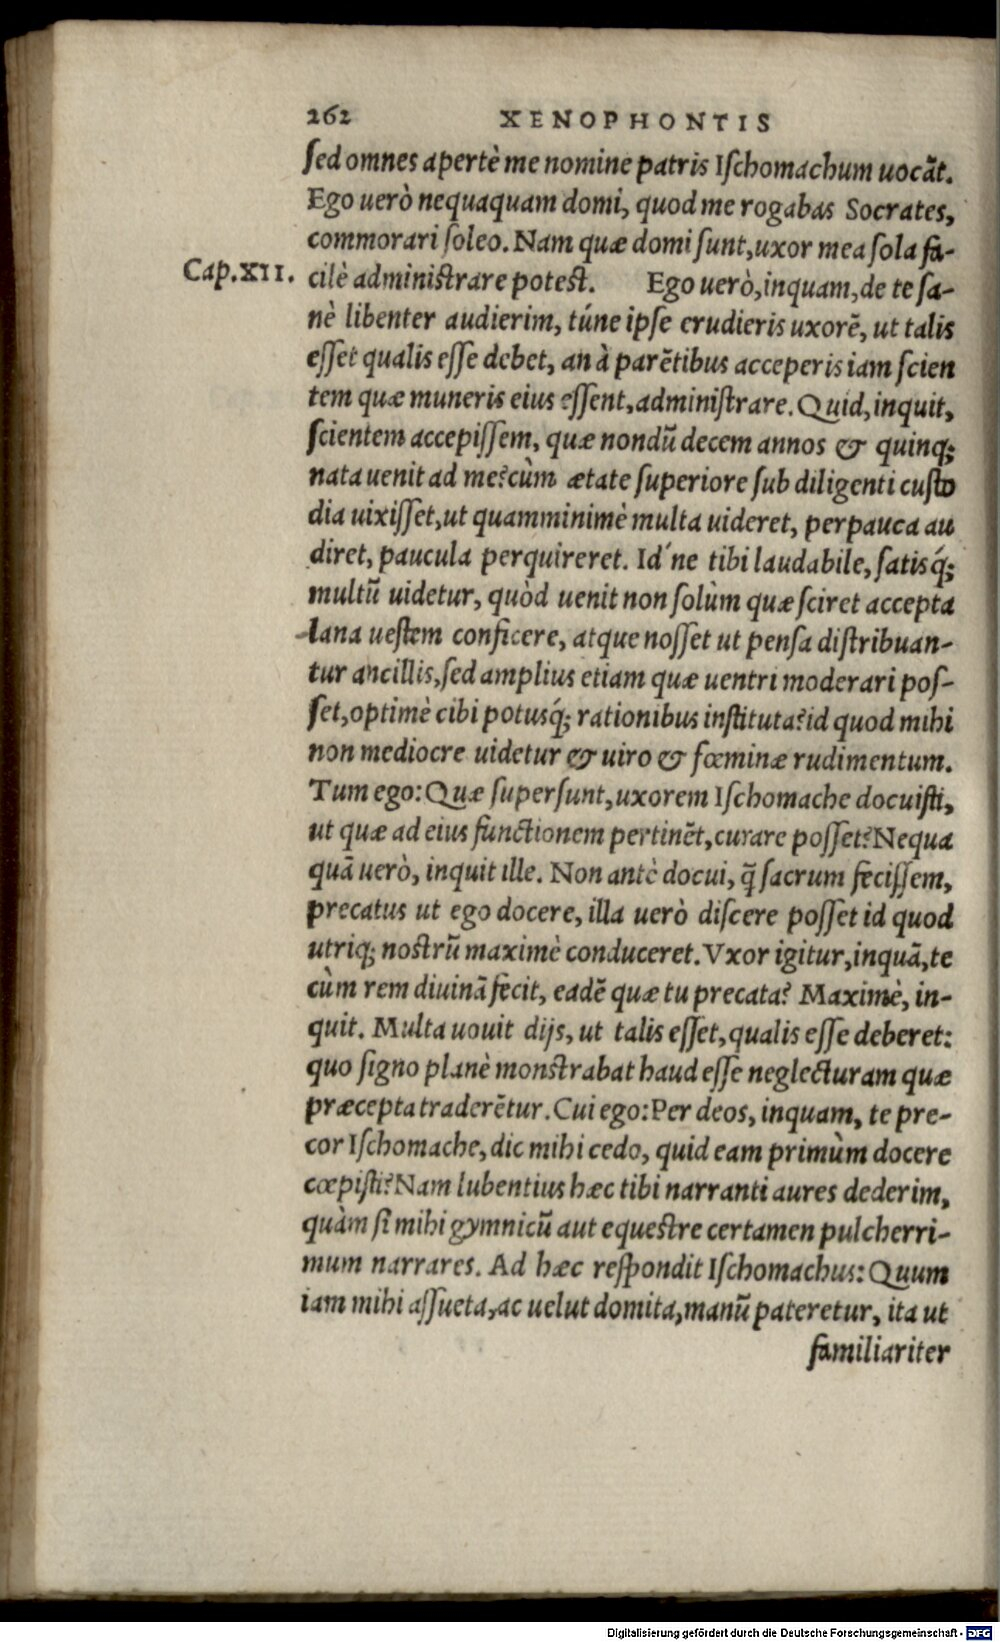 262 XENOPHONTIS
ſed omnes apertè me nomine patris Iſchomachum uocãt.
Ego uerò nequaquam domi, quod me rogabas Socrates,
commorari ſoleo. Nam quæ domi ſunt, uxor mea ſola fa-
Cap. XII. cilè adminiſtrare poteſt. Ego uerò, inquam, de te ſa-
nè libenter audierim, túne ipſe erudieris uxorẽ, ut talis
eſſet qualis eſſe debet, an à parẽtibus acceperis iam ſcien
tem quæ muneris eius eſſent, adminiſtrare. Quid, inquit,
ſcientem accepiſſem, quæ nondũ decem annos & quinq;
nata uenit ad me? cùm ætate ſuperiore ſub diligenti cuſto
dia uixiſſet, ut quamminimè multa uideret, perpauca au
diret, paucula perquireret. Id´ne tibi laudabile, ſatisq́;
multũ uidetur, quòd uenit non ſolùm quæ ſciret accepta
lana ueſtem conficere, atque noſſet ut penſa diſtribuan-
tur ancillis, ſed amplius etiam quæ uentri moderari poſ-
ſet, optimè cibi potusq́; rationibus inſtituta? id quod mihi
non mediocre uidetur & uiro & fœminæ rudimentum.
Tum ego: Quæ ſuperſunt, uxorem Iſchomache docuiſti,
ut quæ ad eius functionem pertinẽt, curare poſſet? Nequa
quã uerò, inquit ille. Non antè docui, q̃ ſacrum feciſſem,
precatus ut ego docere, illa uerò diſcere poſſet id quod
utriq; noſtrũ maximè conduceret. Vxor igitur, inquã, te
cùm rem diuinã fecit, eadẽ quæ tu precata? Maximè, in-
quit. Multa uouit dijs, ut talis eſſet, qualis eſſe deberet:
quo ſigno planè monſtrabat haud eſſe neglecturam quæ
præcepta traderẽtur. Cui ego: Per deos, inquam, te pre-
cor Iſchomache, dic mihi cedo, quid eam primùm docere
cœpiſti? Nam lubentius hæc tibi narranti aures dederim,
quàm ſi mihi gymnicũ aut equeſtre certamen pulcherri-
mum narrares. Ad hæc reſpondit Iſchomachus: Quum
iam mihi aſſueta, ac uelut domita, manũ pateretur, ita ut
familiariter
Digitalisierung gefördert durch die Deutsche Forschungsgemeinschaft - DFG